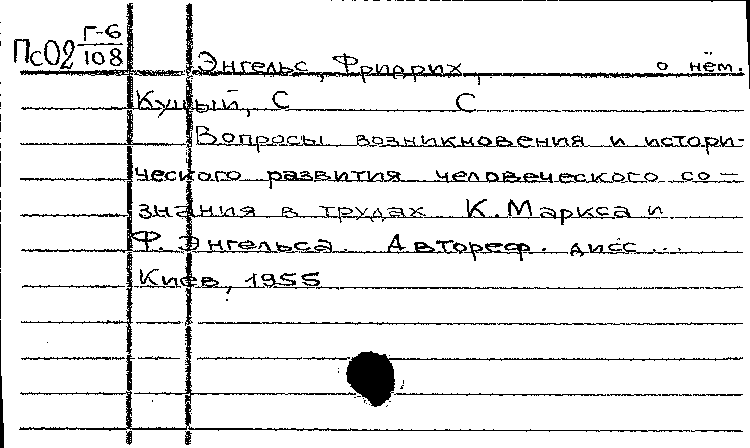 ПсО2 Г-6
108
Энгельс, Фридрих, о нём.
С С
Вопросы возникновения и истори-
ческого развития человеческого со-
знания в трудах К. Маркса и
Ф. Энгельса. Автореф. дисс...
Киев, 1955